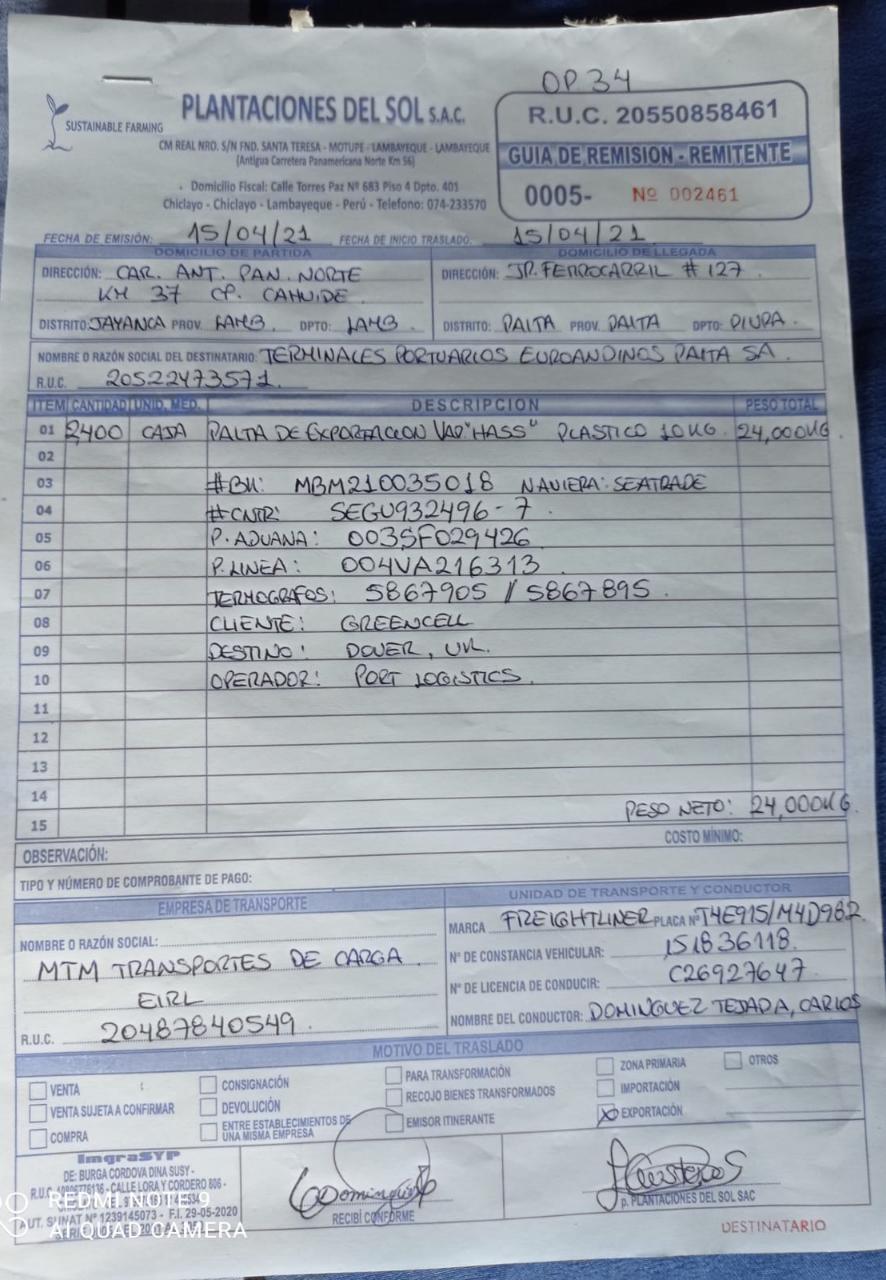 OP 34
SUSTAINABLE FARMING
PLANTACIONES DEL SOL S.A.C.
CM REAL NRO. S/N FND. SANTA TERESA - MOTUPE - LAMBAYEQUE - LAMBAYEQUE
(Antigua Carretera Panamericana Norte Km 56)
Domicilio Fiscal: Calle Torres Paz Nº 683 Piso 4 Dpto. 401
Chiclayo - Chiclayo - Lambayeque - Perú - Telefono: 074-233570
R.U.C. 20550858461
GUIA DE REMISION - REMITENTE
0005- Nº 002461
FECHA DE EMISIÓN: 15/04/21 FECHA DE INICIO TRASLADO: 15/04/21
DOMICILIO DE PARTIDA
DIRECCIÓN: CAR. ANT. PAN. NORTE
KM 37 CP. CAHUIDE.
DISTRITO: JAYANCA PROV. LAMB. DPTO: LAMB.
DOMICILIO DE LLEGADA
DIRECCIÓN: JR. FERROCARRIL # 127
DISTRITO: PAITA PROV. PAITA DPTO: PIURA.
NOMBRE O RAZÓN SOCIAL DEL DESTINATARIO: TERMINALES PORTUARIOS EUROANDINOS PAITA SA.
R.U.C. 20522473571.
ITEM CANTIDAD UNID. MED. DESCRIPCION PESO TOTAL
01 2,400 CAJA PALTA DE EXPORTACION VAR "HASS" PLASTICO 10KG. 24,000KG.
02
03 #BK: MBM210035018 NAVIERA: SEATRADE
04 #CNTR: SEGU932496-7.
05 P. ADUANA: 003SF029426
06 P. LINEA: 004VA216313.
07 TERMOGRAFOS: 5867905 / 5867895.
08 CLIENTE: GREENCELL
09 DESTINO: DOVER, UK.
10 OPERADOR: PORT LOGISTICS.
11
12
13
14
15 PESO NETO: 24,000KG.
COSTO MÍNIMO:
OBSERVACIÓN:
TIPO Y NÚMERO DE COMPROBANTE DE PAGO:
EMPRESA DE TRANSPORTE
NOMBRE O RAZÓN SOCIAL:
MTM TRANSPORTES DE CARGA
EIRL
R.U.C. 20487840549.
UNIDAD DE TRANSPORTE Y CONDUCTOR
MARCA FREIGHTLINER PLACA Nº T4E915/M4D982
Nº DE CONSTANCIA VEHICULAR: 151836118.
Nº DE LICENCIA DE CONDUCIR: C26927647
NOMBRE DEL CONDUCTOR: DOMINGUEZ TEJADA, CARLOS
MOTIVO DEL TRASLADO
VENTA CONSIGNACIÓN PARA TRANSFORMACIÓN ZONA PRIMARIA OTROS
VENTA SUJETA A CONFIRMAR DEVOLUCIÓN RECOJO BIENES TRANSFORMADOS IMPORTACIÓN
COMPRA ENTRE ESTABLECIMIENTOS DE EMISOR ITINERANTE X EXPORTACIÓN
UNA MISMA EMPRESA
ImgraSYP
DE: BURGA CORDOVA DINA SUSY -
CALLE LORA Y CORDERO 806 -
AUT. SUNAT Nº 1239145073 - F.I. 29-05-2020
RECIBÍ CONFORME
p. PLANTACIONES DEL SOL SAC
DESTINATARIO
REDMI NOTE 9
AI QUAD CAMERA